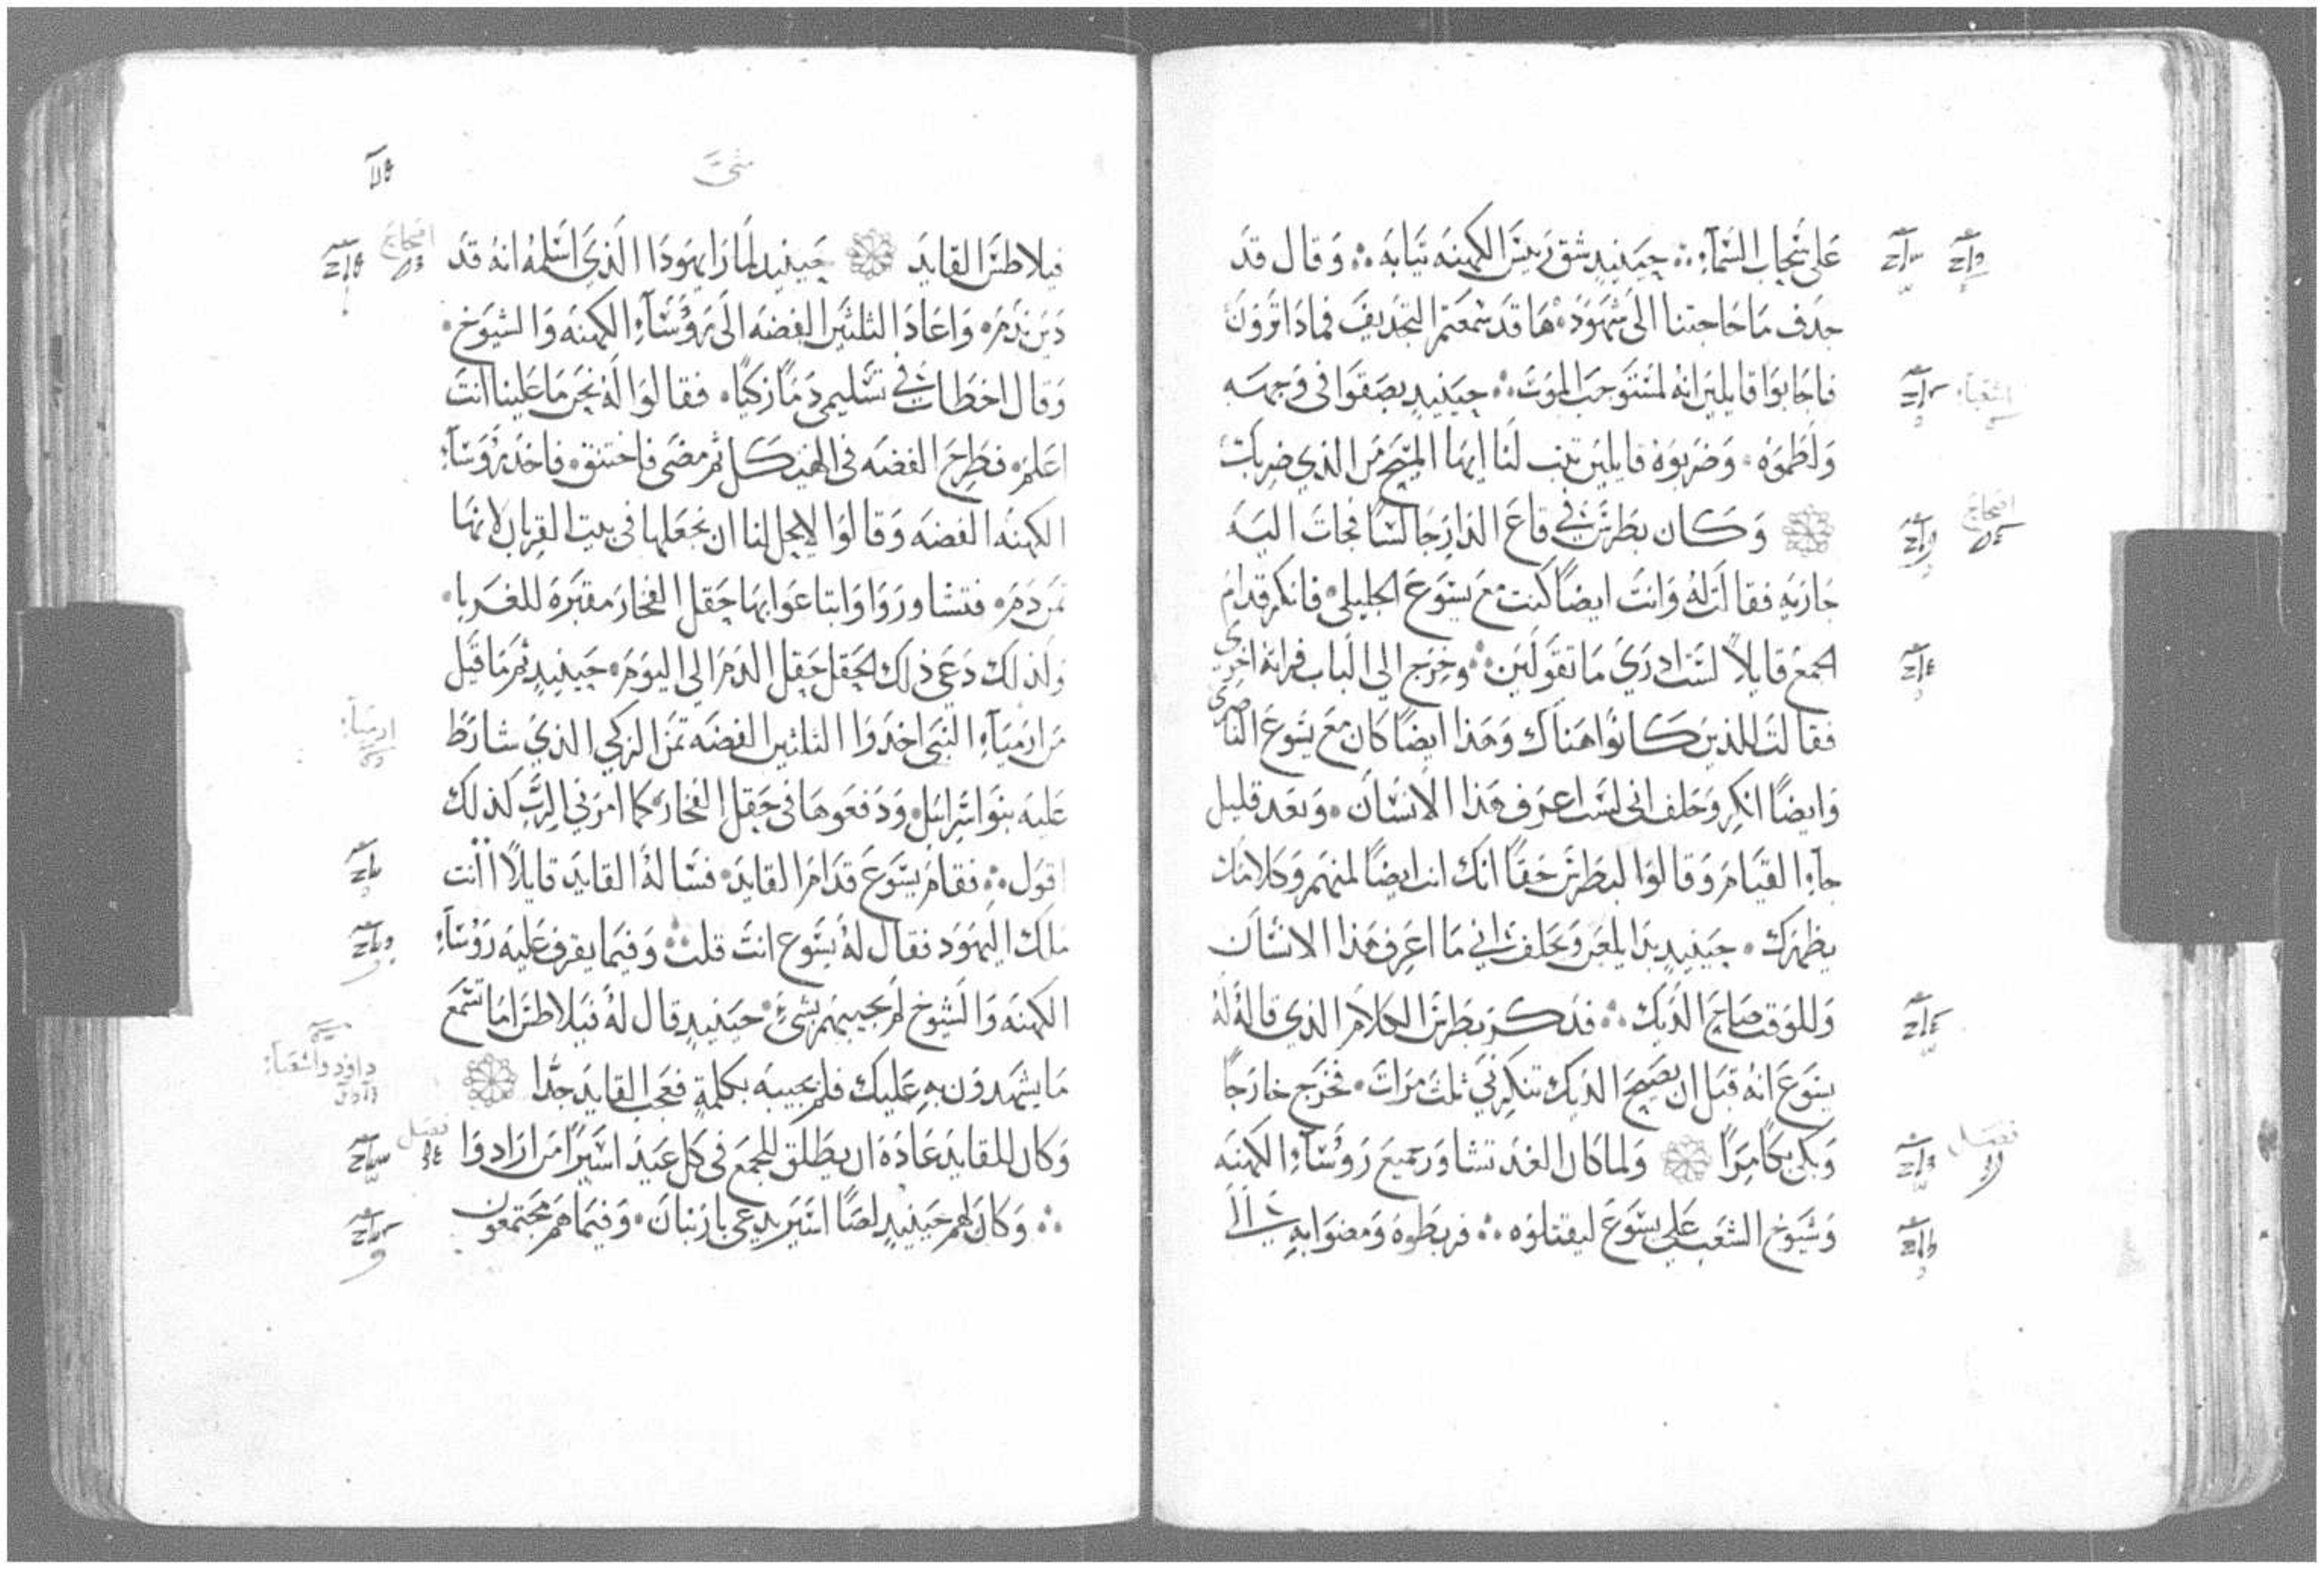 على سحاب السمآءِ ܀ حينيذٍ شق رييس الكهنه ثيابه ܀ وقال قد
جدف ما حاجتنا الى شهود ها قد سمعتم التجديف فماذا ترون
فاجابوا قايلين انه لمستوجب الموت ܀ حينيذٍ بصقوا في وجهه
اشعيا
ولطموه وضربوه قايلين تنب لنا ايها المسيح من الذي ضربك
وكان بطرس في قاع الدار جالسًا فجات اليه
اصحاح
جاريه فقالت له وانت ايضًا كنت مع يسوع الجليلي فانكر قدام
الجمع قايلاً لست ادري ما تقولين ܀ وخرج الى الباب فراته اخرى
فقالت للذين كانوا هناك وهذا ايضًا كان مع يسوع الناصري
وايضًا انكر وحلف انى لست اعرف هذا الانسان وبعد قليل
جآءِ القيام وقالوا لبطرس حقًا انك انت ايضًا لمنهم وكلامك
يظهرك حينيذٍ بدا يلعن ويحلف اني ما اعرف هذا الانسان
وللوقت صاح الديك ܀ فدكر بطرس الكلام الذي قاله له
يسوع انه قبل ان يصيح الديك تنكرني ثلث مرات فخرج خارجًا
وبكى بكا مرًا ولما كان الغد تشاور جميع روسآءِ الكهنه
فصل
وشيوخ الشعب على يسوع ليقتلوه ܀ فربطوه ومضوا به الى
متى
فيلاطس القايد حينيذٍ لما راى يهودا الذي اسلمه انه قد
اصحاح
دين ندم واعاد الثلثين الفضه الى روسآءِ الكهنه والشيوخ
وقال اخطات في تسليمي دمًا زكيًا فقالوا له نحن ما علينا انت
اعلم فطرح الفضه في الهيكل ثم مضى فاختنق فاخذ روسآءِ
الكهنه الفضه وقالوا لا يحل لنا ان نجعلها في بيت القربان لانها
ثمن دم فتشاوروا وابتاعوا بها حقل الفخار مقبره للغربا
ولذلك دعى ذلك الحقل حقل الدم الى اليوم حينيذٍ تم ما قيل
من ارميآءِ النبي اخذوا الثلثين الفضه ثمن الزكي الذي شارط
ارميا
عليه بنو اسرايل ودفعوها في حقل الفخار كما امرني الرب كذلك
اقول ܀ فقام يسوع قدام القايد فساله القايد قايلاً اانت
ملك اليهود فقال له يسوع انت قلت ܀ وفيما يقرف عليه روسآءِ
الكهنه والشيوخ لم يجيبهم بشيءٍ حينيذٍ قال له فيلاطس اما تسمع
ما يشهدون به عليك فلم يجيبه بكلمةٍ فعجب القايد جدًا
داوود واشعيا
وكان للقايد عادة ان يطلق للجمع في كل عيد اسيرًا من ارادوا
فصل
܀ وكان لهم حينيذٍ لصًا اسير يدعى بارنبان وفيما هم مجتمعون